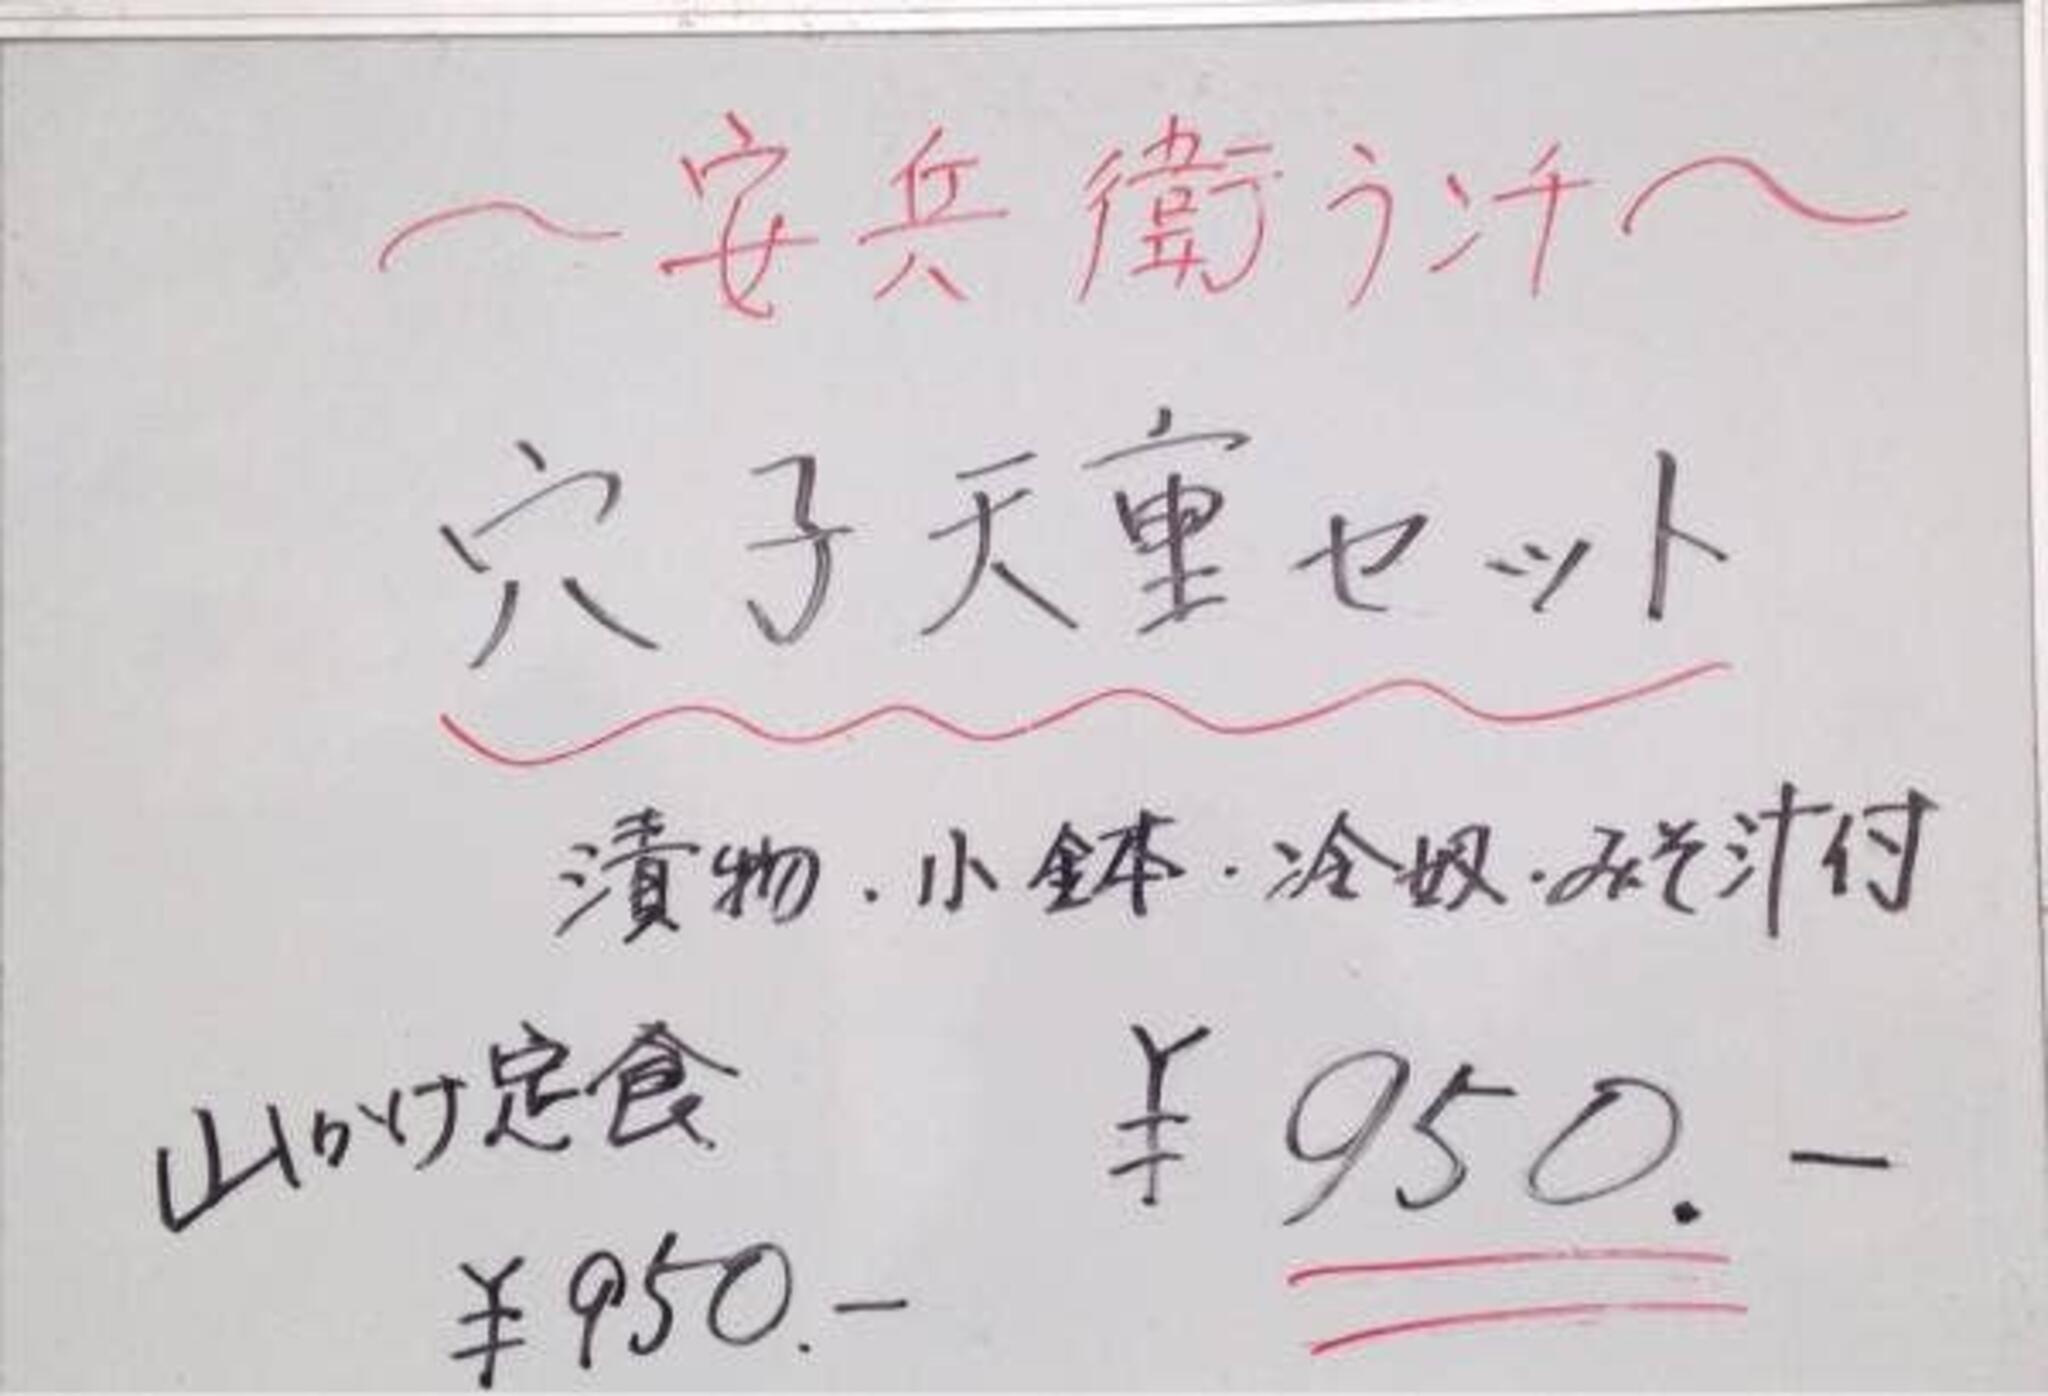 〜安兵衛ランチ〜
穴子天重セット
漬物・小鉢・冷奴・みそ汁付
¥950.-
山かけ定食
¥950.-